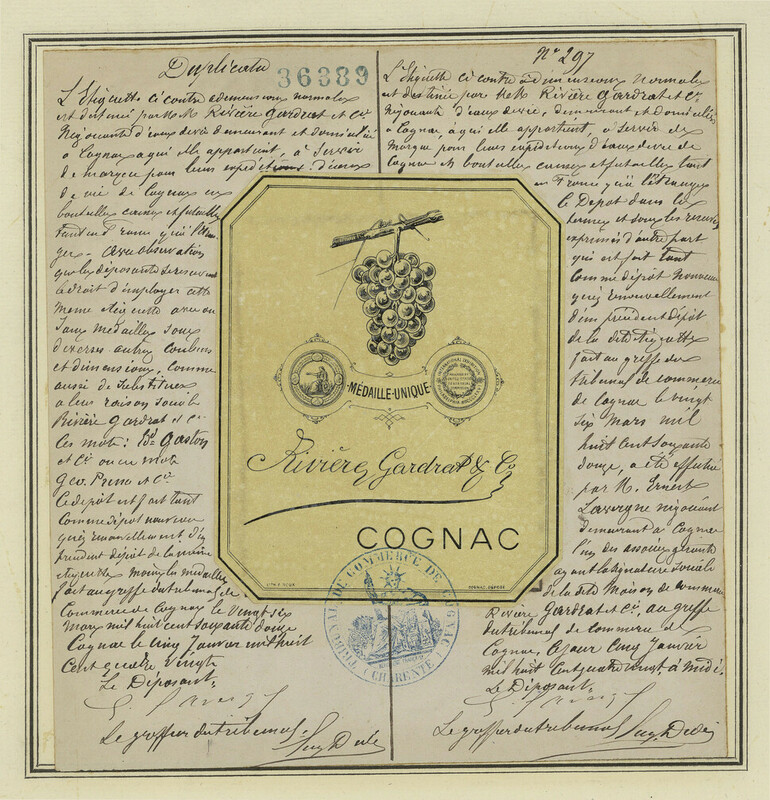 Duplicata
36389
L'Etiquette ci contre a dimensions normales
est destinée par MM Rivière Gardrat et Cie
Négociants d'eaux de vie demeurant et domiciliés
à Cognac à qui elle appartient, à servir
de marque pour leurs expéditions d'eaux
de vie de Cognac en
bouteilles caisses et futailles
tant en France qu'à l'étran-
ger. Avec observation
que les déposants se réservent
le droit d'employer cette
même étiquette avec ou
sans médailles sous
diverses autres couleurs
et dimensions, comme
aussi de substituer
à leur raison sociale
Rivière Gardrat et Cie
Ces mots: Gaston
et Cie ou en mots
Geo. et Cie
Ce dépôt est fait tant
comme dépôt nouveau
qu'en renouvellement d'un
précédent dépôt de la même
étiquette moins les médailles
fait au greffe du tribunal de
Commerce de Cognac le vingt six
Mars mil huit cent soixante douze
Cognac le cinq Janvier mil huit
Cent quatre vingt
Le Déposant
Le greffier du tribunal
No 297
L'Etiquette ci contre à dimensions normales
est destinée par MM Rivière Gardrat et Cie
Négociants d'eaux de vie, demeurant et domiciliés
à Cognac, à qui elle appartient, à servir de
Marque pour leurs expéditions d'eaux de vie de
Cognac en bouteilles caisses et futailles tant
en France qu'à l'étranger
Le Dépôt dans les
termes et sous les réserves
exprimés d'autre part
qui est fait tant
comme dépôt nouveau
qu'en renouvellement
d'un précédent dépôt
de la dite étiquette
fait au greffe du
tribunal de commerce
de Cognac le vingt
six Mars mil
huit cent soixante
douze, a été effectué
par M. Ernest
Lavergne négociant
demeurant à Cognac
l'un des associés gérants
ayant la signature sociale
de la dite Maison de commerce
Rivière Gardrat et Cie, au greffe
du tribunal de Commerce de
Cognac, ce jour cinq Janvier
mil huit cent quatre vingt, à midi.
Le Déposant
Le greffier du tribunal
MÉDAILLE-UNIQUE
Rivière, Gardrat & Co
COGNAC
TRIBUNAL DE COMMERCE DE COGNAC
(CHARENTE)